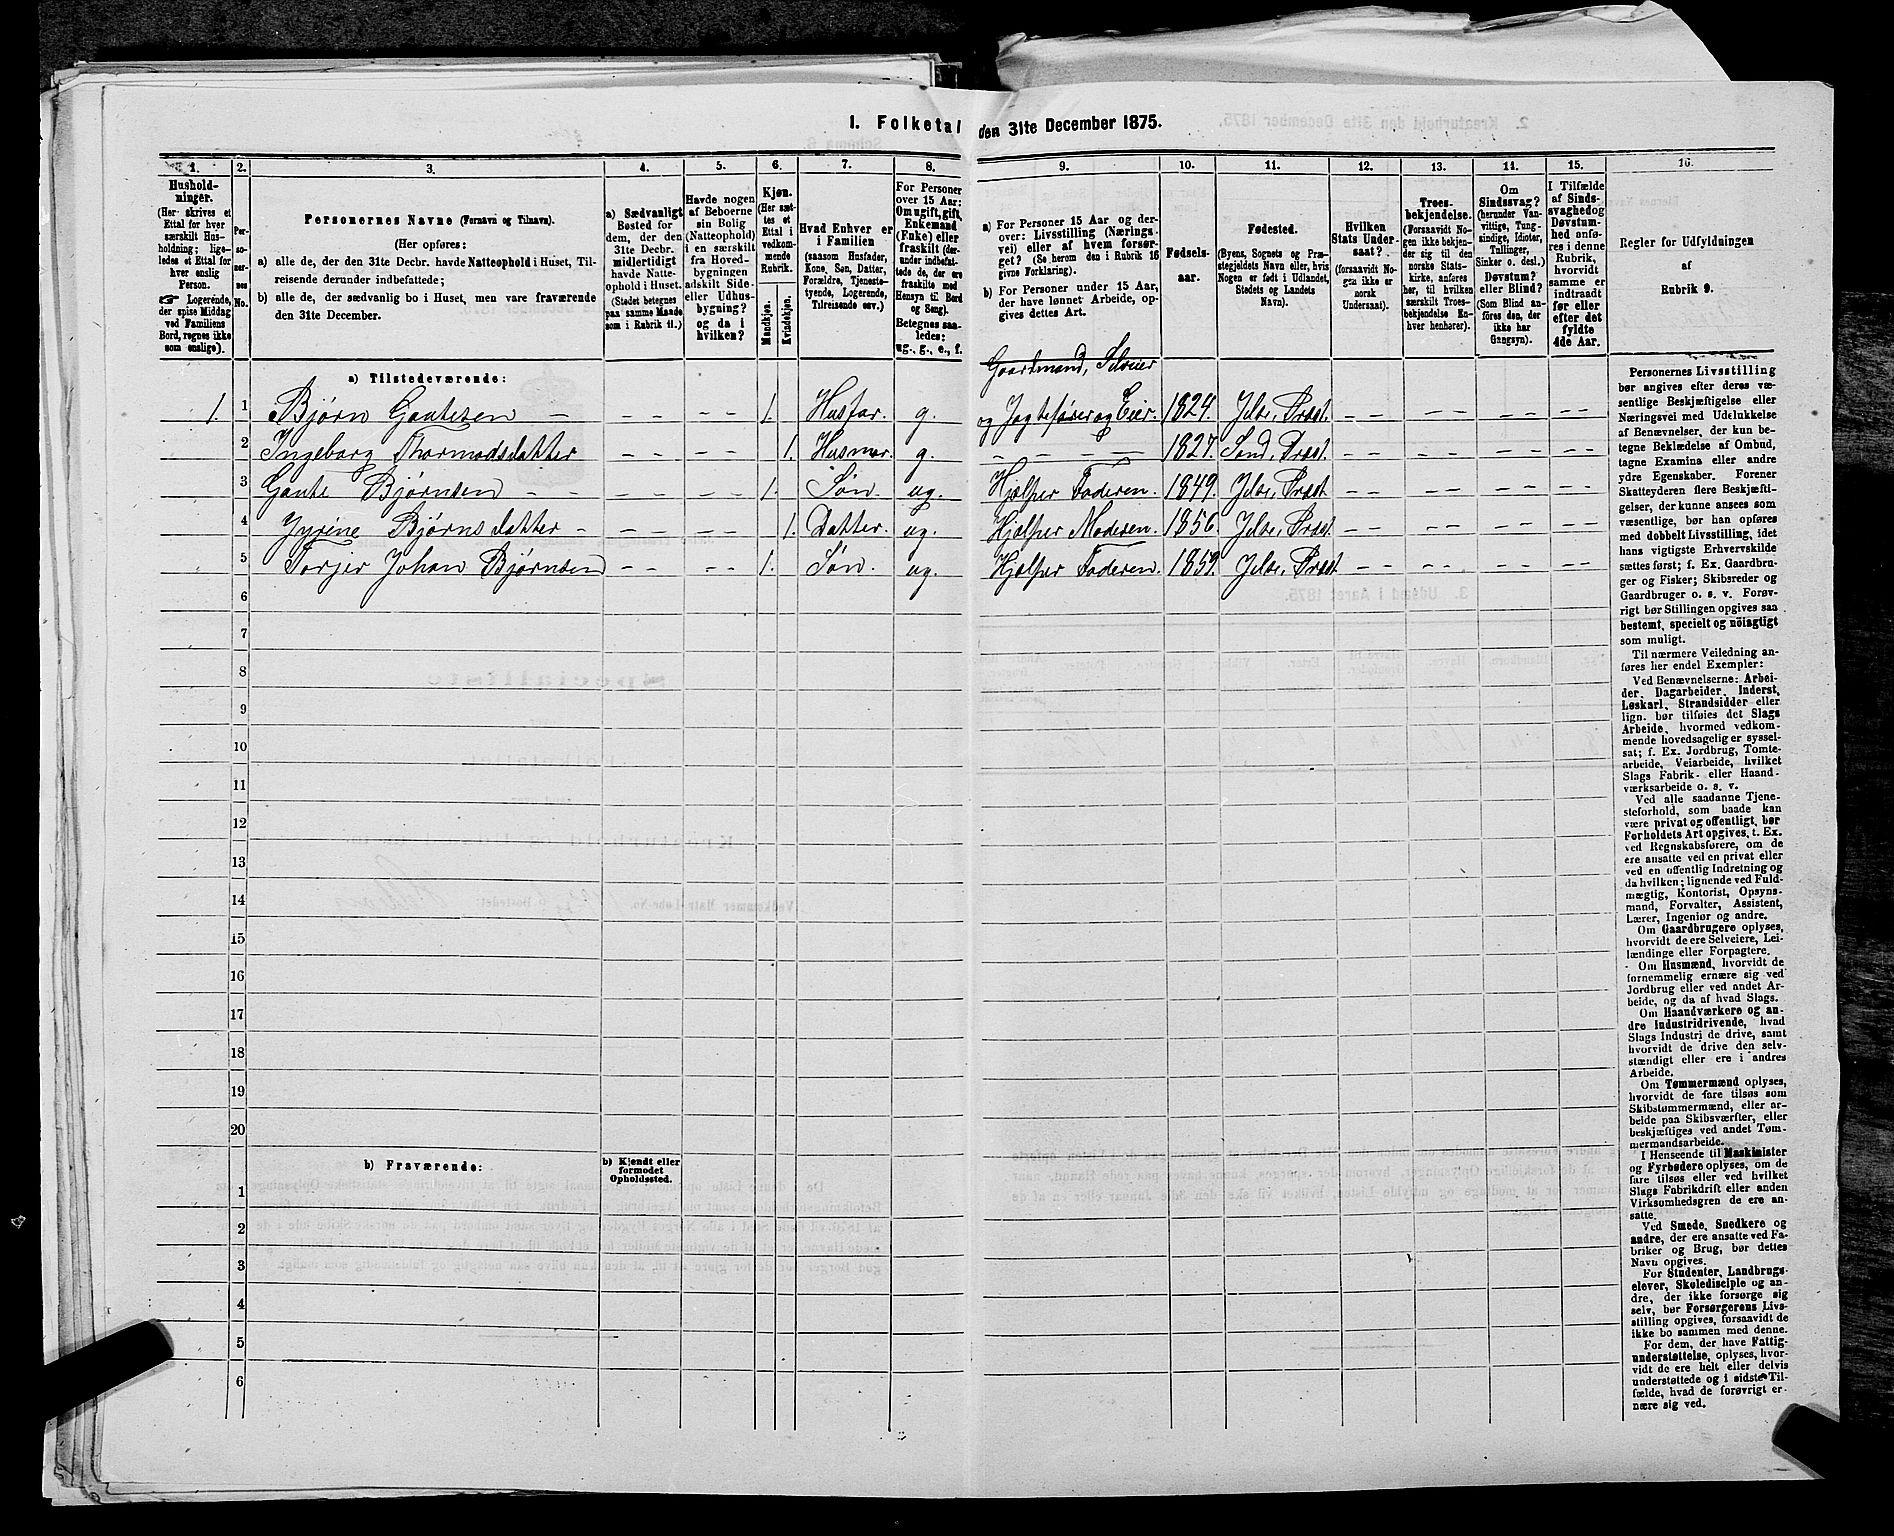 1. Folketal den 31te December 1875.
1.
Hushold-
ninger.
(Her skrives et
Ettal for hver
særskilt Hus-
holdning; lige-
ledes et Ettal for
hver enslig
Person.
☞ Logerende,
der spise Middag
ved Familiens
Bord, regnes ikke
som enslige).
2.
Per-
so-
ner-
nes
No.
3.
Personernes Navne (Fornavn og Tilnavn).
(Her opføres:
a) alle de, der den 31te Decbr. havde Natteophold i Huset, Til-
reisende derunder indbefattede;
b) alle de, der sædvanlig bo i Huset, men vare fraværende
den 31te December.
4.
a) Sædvanligt
Bosted for
dem, der den
31te Decbr.
midlertidigt
havde Natte-
ophold i Huset.
(Stedet betegnes
paa samme Maade
som i Rubrik 11.)
5.
Havde nogen
af Beboerne
sin Bolig
(Natteophold)
i en særskilt
fra Hoved-
bygningen
adskilt Side-
eller Udhus-
bygning?
og da i
hvilken?
6.
Kjøn.
(Her sæt-
tes et
Ettal i
vedkom-
mende
Rubrik.
Mandkjøn.
Kvindekjøn.
7.
Hvad Enhver er
i Familien
(saasom Husfader,
Kone, Søn, Datter,
Forældre, Tjeneste-
tyende, Logerende,
Tilreisende osv.)
8.
For Personer
over 15 Aar:
Om ugift, gift,
Enkemand
(Enke) eller
fraskilt (der-
under indbefat-
tede de, der ere
fraskilte med
Hensyn til Bord
og Seng).
Betegnes saa-
ledes:
ug., g., e., f.
9.
a) For Personer 15 Aar og der-
over: Livsstilling (Nærings-
vei) eller af hvem forsør-
get? (Se herom den i Rubrik 16
givne Forklaring).
b) For Personer under 15 Aar,
der have lønnet Arbeide, op-
gives dettes Art.
10.
Fødsels-
aar.
11.
Fødested.
(Byens, Sognets og Præ-
stegjeldets Navn eller, hvis
Nogen er født i Udlandet,
Stedets og Landets
Navn).
12.
Hvilken
Stats Under-
saat?
(forsaavidt No-
gen ikke er
norsk
Undersaat).
13.
Troes-
bekjendelse.
(Forsaavidt No-
gen ikke bekjen-
der sig til den
norske Stats-
kirke, anføres
her, til hvilken
særskilt Troes-
bekjendelse En-
hver henhører).
14.
Om
Sindssvag?
(herunder Van-
vittige, Idioter,
Tullinger,
Sinker o. desl.)
Døvstum?
eller Blind?
(Som Blind an-
føres den, der
ikke har
Gangsyn).
15.
I Tilfælde
af Sinds-
svaghed og
Døvstum-
hed anfø-
res i denne
Rubrik,
hvorvidt
samme er
indtraadt
før eller
efter det
fyldte
4de Aar.
16.
Regler for Udfyldningen
af
Rubrik 9.
a) Tilstedeværende:
Gaardmand, Selveier
1. 1 Bjørn Gautesen – – – – – 1. Husfar. g. og Jagtefører og Eier. 1824. Jelse, Præst. – – – – – – – –
2 Ingeborg Thormodsdatter – – – – 1. Husmor. g. – – – – – 1827. Sand, Præst. – – – – – – – –
3 Gaute Bjørnsen – – – – – – 1. Søn. ug. Hjælper Faderen. 1849. Jelse, Præst. – – – – – – – –
4 Jyrine Bjørnsdatter – – – – – 1. Datter. ug. Hjælper Moderen. 1856. Jelse, Præst. – – – – – – – –
5 Torjer Johan Bjørnsen – – – – 1. Søn. ug. Hjælper Faderen. 1859. Jelse, Præst. – – – – – – – –
6
7
8
9
10
11
12
13
14
15
16
17
18
19
20
b) Fraværende:
b) Kjendt eller
formodet
Opholdssted.
1
2
3
4
5
6
Personernes Livsstilling
bør angives efter deres væ-
sentlige Beskjæftigelse eller
Næringsvei med Udelukkelse
af Benævnelser, der kun be-
tegne Beklædelse af Ombud,
tagne Examina eller andre
ydre Egenskaber. Forener
Skatteyderen flere Beskjæfti-
gelser, der kunne ansees som
væsentlige, bør han opføres
med dobbelt Livsstilling, idet
hans vigtigste Erhvervskilde
sættes først; f. Ex. Gaardbru-
ger og Fisker; Skibsreder og
Gaardbruger o. s. v. Forøv-
rigt bør Stillingen opgives saa
bestemt, specielt og nöiagtigt
som muligt.
Til nærmere Veiledning an-
føres her endel Exempler:
Ved Benævnelserne: Arbei-
der, Dagarbeider, Inderst,
Løskarl, Strandsidder eller
lign. bør tilføies det Slags
Arbeide, hvormed vedkom-
mende hovedsagelig er syssel-
sat; f. Ex. Jordbrug, Tomte-
arbeide, Veiarbeide, hvilket
Slags Fabrik- eller Haand-
værksarbeide o. s. v.
Ved alle saadanne Tjene-
steforhold, som baade kan
være privat og offentligt, bør
Forholdets Art opgives, t. Ex.
ved Regnskabsførere, om de
ere ansatte ved en privat eller
ved en offentlig Indretning og
da hvilken; lignende ved Fuld-
mægtig, Kontorist, Opsyns-
mand, Forvalter, Assistent,
Lærer, Ingeniør og andre.
Om Gaardbrugere oplyses,
hvorvidt de ere Selveiere, Lei-
lændinge eller Forpagtere.
Om Husmænd, hvorvidt de
fornemmelig ernære sig ved
Jordbrug eller ved andet Ar-
beide, og da af hvad Slags.
Om Haandværkere og an-
dre Industridrivende, hvad
Slags Industri de drive, samt
hvorvidt de drive den selv-
stændigt eller ere i andres
Arbeide.
Om Tømmermænd oplyses,
hvorvidt de fare tilsøs som
Skibstømmermænd, eller ar-
beide paa Skibsværfter, eller
beskjæftiges ved andet Tøm-
mermandsarbeide.
I Henseende til Maskinister
og Fyrbødere oplyses, om de
fare tilsøs eller ved hvilket
Slags Fabrikdrift eller anden
Virksomhedsgren de ere an-
satte.
Ved Smede, Snedkere og
andre, der ere ansatte ved Fa-
briker og Brug, bør dettes
Navn opgives.
For Studenter, Landbrugs-
elever, Skoledisciple og an-
dre, der ikke forsørge sig
selv, bør Forsørgerens Livs-
stilling opgives, forsaavidt de
ikke bo sammen med denne.
For dem, der have Fattig-
understøttelse, oplyses, hvor-
vidt de ere helt eller delvis
understøttede og i sidste Til-
fælde, hvad de forøvrigt er-
nære sig ved.